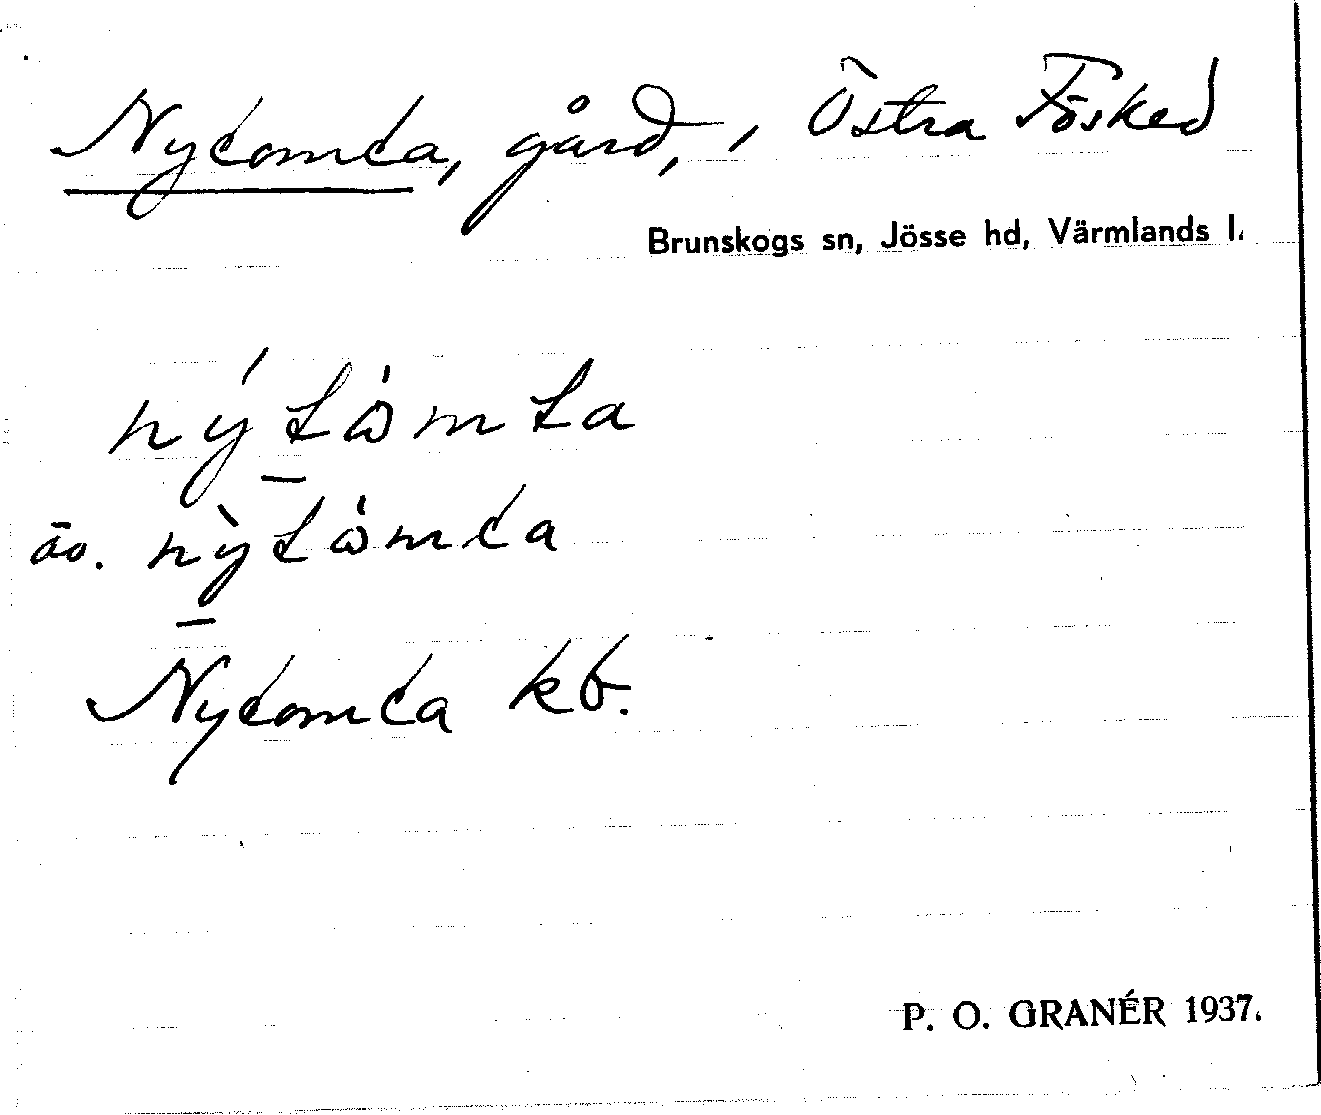 Nytomta, gård, i Östra Fösked
Brunskogs sn, Jösse hd, Värmlands l.
nýtòmta
äv. nỳtòmta
Nytomta kb.
P. O. GRANÉR 1937.